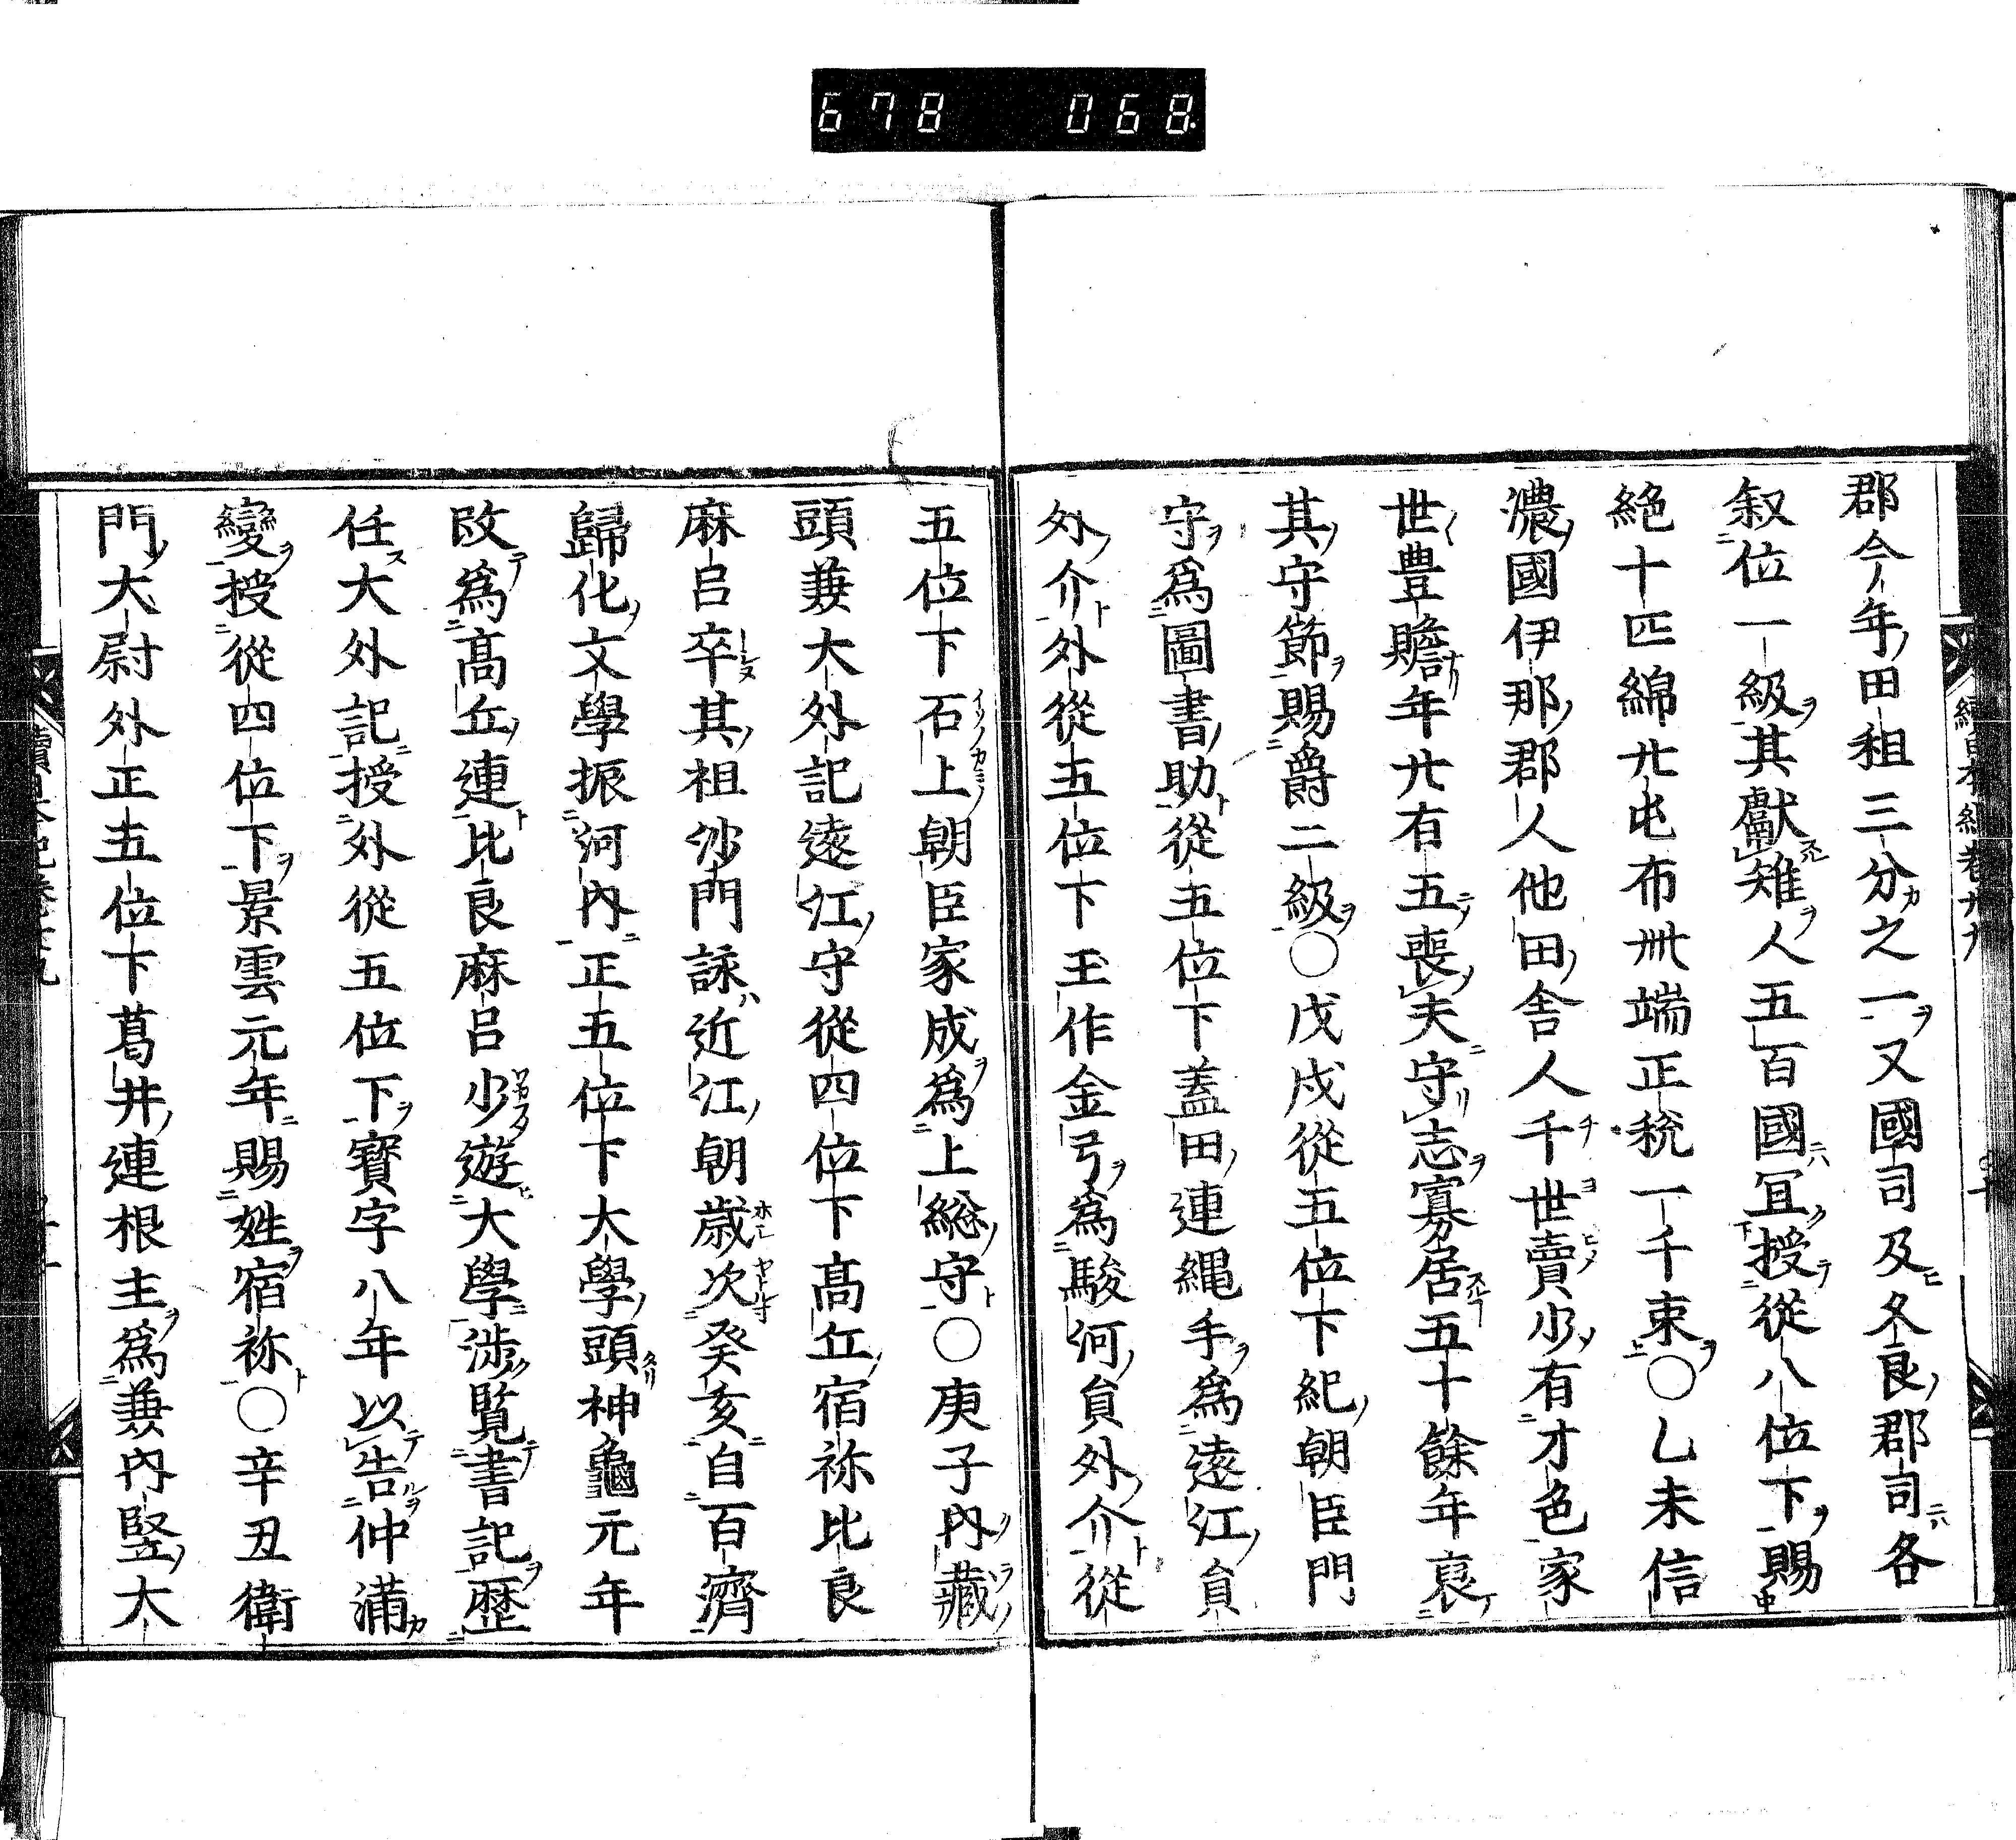 678 068
郡今年田租三分之一又國司及久良郡司各
叙位一級其獻雉人五百國冝授從八位下賜
絁十匹綿廿屯布卌端正税一千束〇乙未信
濃國伊那郡人他田舎人千世賣少有才色家
世豊贍年廿有五喪夫守志寡居五十餘年襃
其守節賜爵二級〇戊戌從五位下紀朝臣門
守爲圖書助從五位下蓋田連繩手爲遠江員
外介外從五位下玉作金弓爲駿河員外介從
五位下石上朝臣家成爲上総守〇庚子内藏
頭兼大外記遠江守從四位下髙丘宿祢比良
麻呂卒其祖沙門詠近江朝歳次癸亥自百濟
歸化文學振河内正五位下大學頭神龜元年
改爲髙丘連比良麻呂少遊大學涉覧書記歴
任大外記授外從五位下寶字八年以告仲滿
變授從四位下景雲元年賜姓宿祢〇辛丑衛
門大尉外正五位下葛井連根主爲兼内竪大